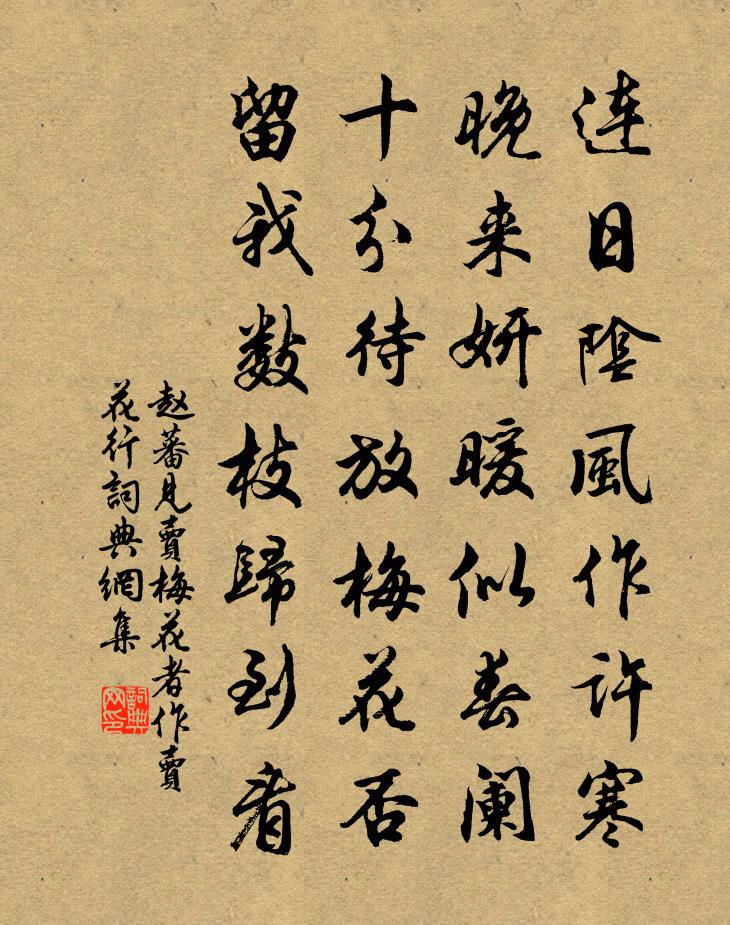 连日陰風作許寒
晚来妍暖似春阑
十分待放梅花否
留我数枝歸到看
赵蕃見賣梅花者作賣
花行詞典網集
詞典网印